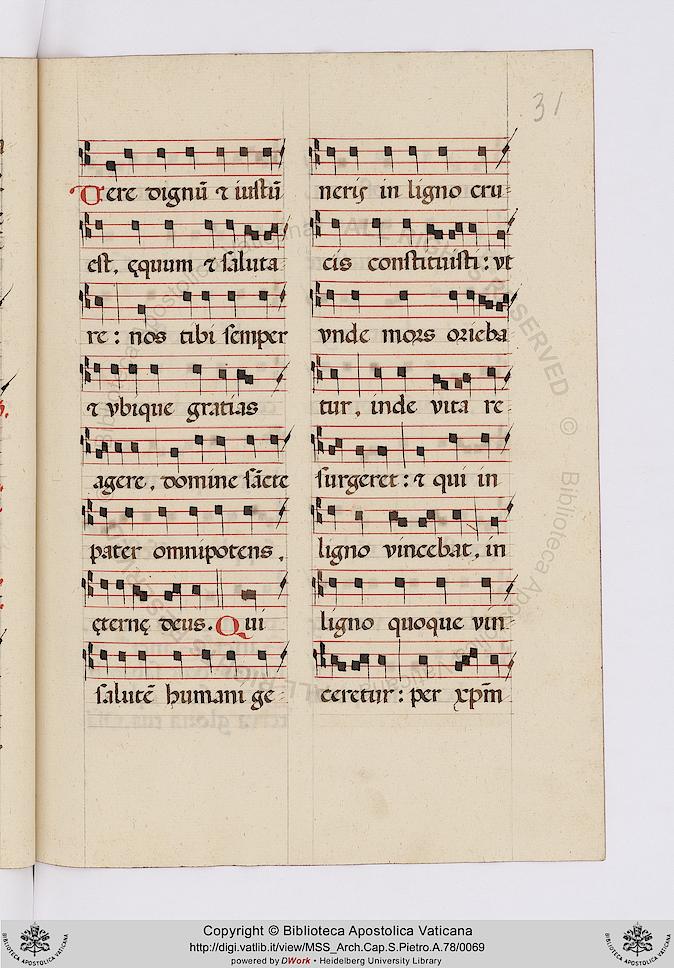 31
Vere dignū ⁊ iustū
est, ęquum ⁊ saluta
re: nos tibi semper
⁊ vbique gratias
agere, domine sācte
pater omnipotens,
ęternę deus. Qui
salutē humani ge-
neris in ligno cru-
cis constituisti: vt
vnde mors orieba
tur, inde vita re-
surgeret: ⁊ qui in
ligno vincebat, in
ligno quoque vin-
ceretur: per xp̄m
Copyright © Biblioteca Apostolica Vaticana
http://digi.vatlib.it/view/MSS_Arch.Cap.S.Pietro.A.78/0069
powered by DWork • Heidelberg University Library
BIBLIOTECA APOSTOLICA VATICANA
BIBLIOTECA APOSTOLICA VATICANA